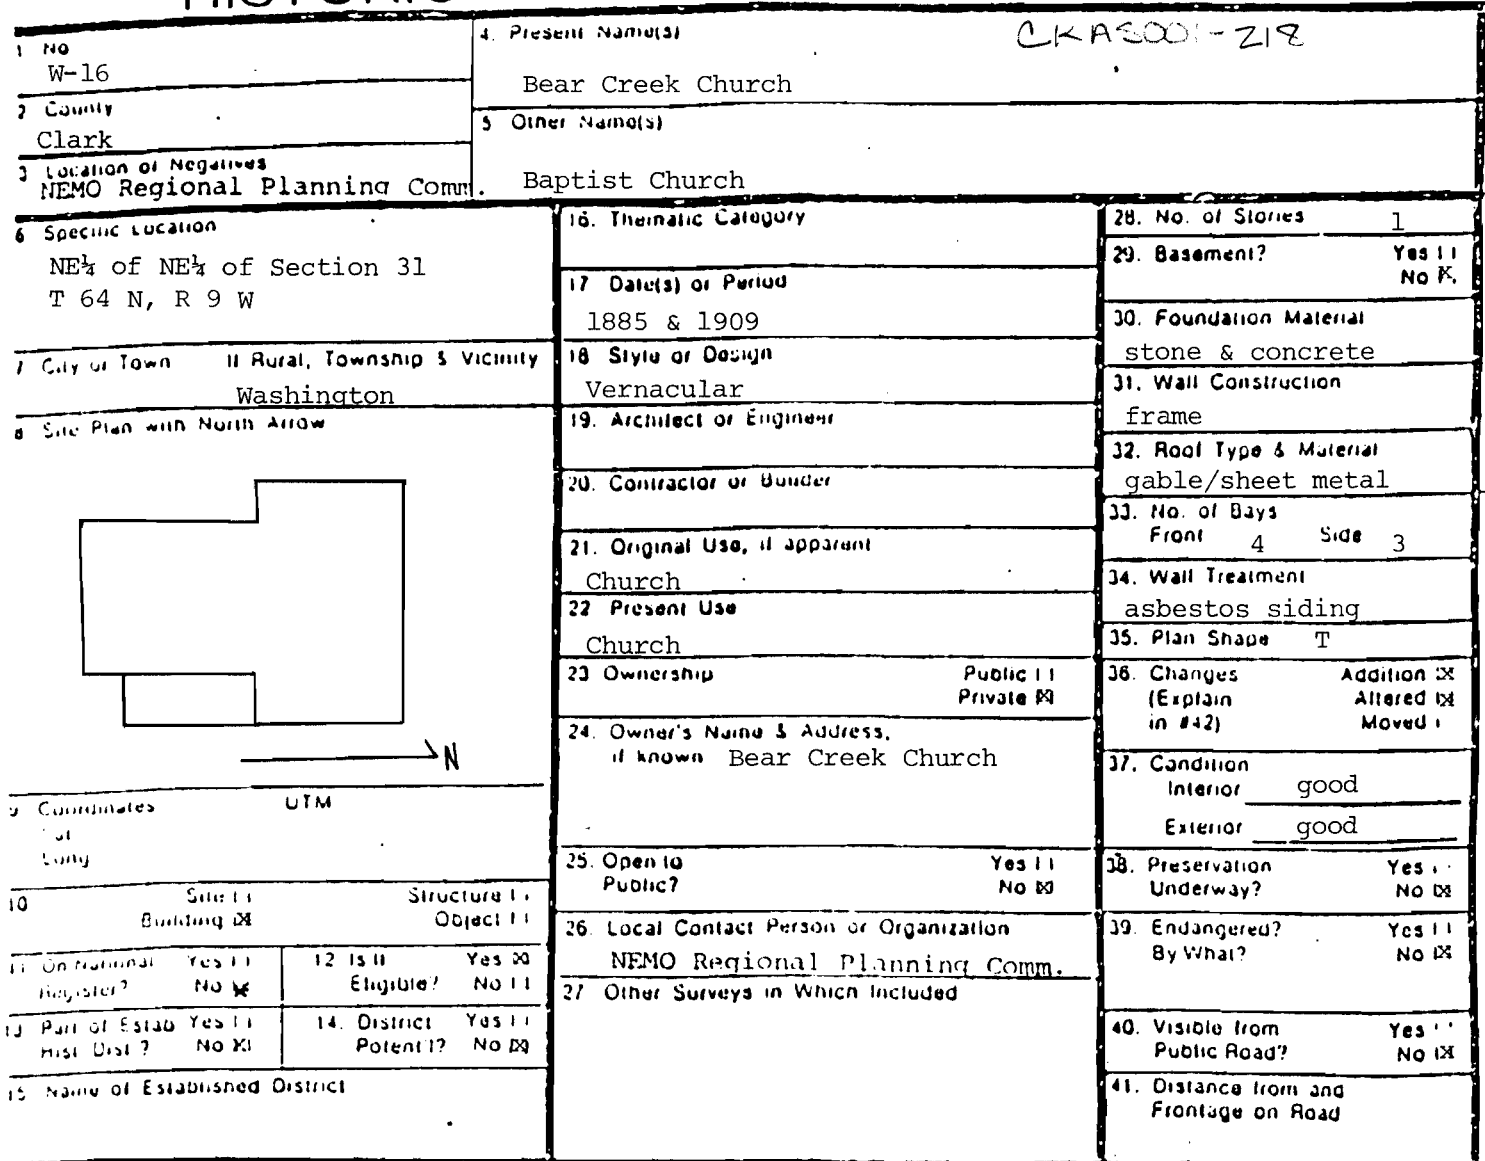 HISTORIC
1 No
W-16
4. Present Name(s)
CKAS001-218
Bear Creek Church
2 County
Clark
5 Other Name(s)
Baptist Church
3 Location of Negatives
NEMO Regional Planning Comm.
6 Specific Location
NE¼ of NE¼ of Section 31
T 64 N, R 9 W
7 City or Town If Rural, Township & Vicinity
Washington
8 Site Plan with North Arrow
N
9 Coordinates UTM
Lat
Long
10 Site
Structure
Building X
Object
11 On National Register? Yes
No X
12 Is It Eligible? Yes X
No
13 Part of Estab Hist. Dist.? Yes
No X
14. District Potent'l? Yes
No X
15 Name of Established District
16. Thematic Category
17 Date(s) or Period
1885 & 1909
18 Style or Design
Vernacular
19. Architect or Engineer
20. Contractor or Builder
21. Original Use, if apparent
Church
22 Present Use
Church
23 Ownership Public
Private X
24. Owner's Name & Address,
if known Bear Creek Church
25. Open to Public? Yes
No X
26. Local Contact Person or Organization
NEMO Regional Planning Comm.
27 Other Surveys in Which Included
28. No. of Stories 1
29. Basement? Yes
No X
30. Foundation Material
stone & concrete
31. Wall Construction
frame
32. Roof Type & Material
gable/sheet metal
33. No. of Bays
Front 4 Side 3
34. Wall Treatment
asbestos siding
35. Plan Shape T
36. Changes Addition X
(Explain Altered X
in #42) Moved
37. Condition
Interior good
Exterior good
38. Preservation Yes
Underway? No X
39. Endangered? Yes
By What? No X
40. Visible from Yes
Public Road? No X
41. Distance from and
Frontage on Road